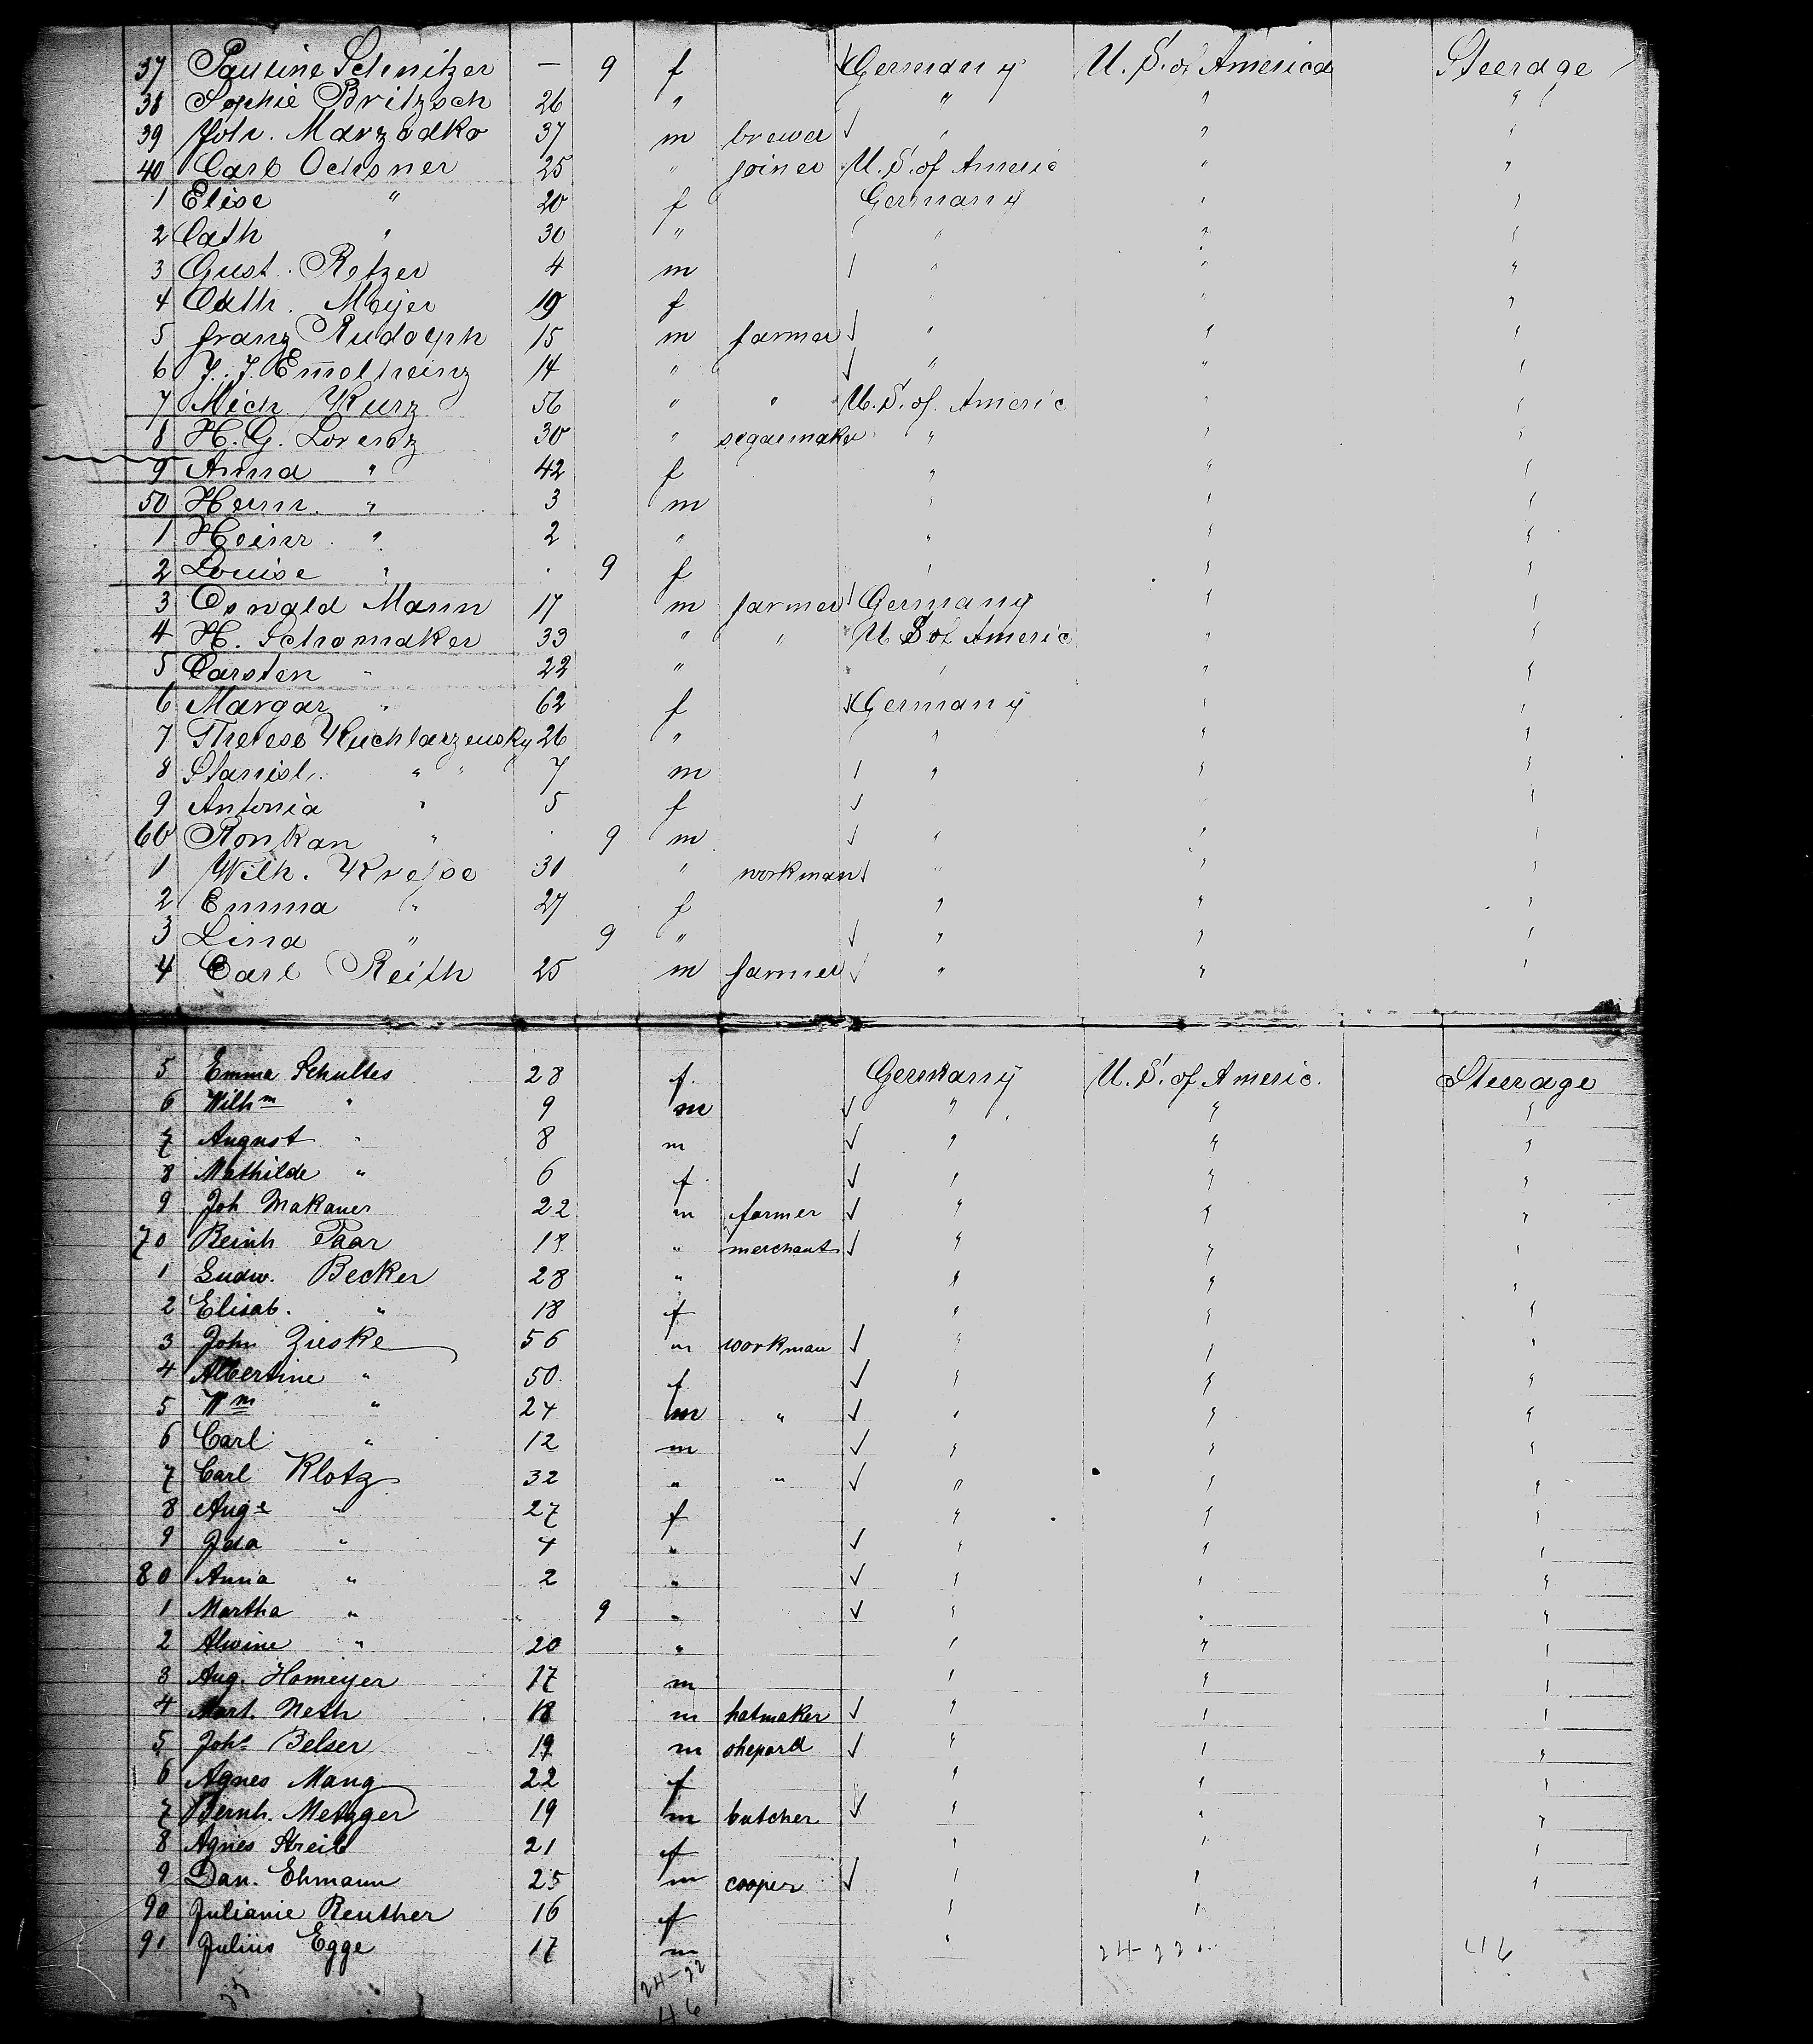 37 Pauline Schnitzer — 9 f Germany U. S. of America Steerage
38 Sophie Britzsch 26 " " " "
39 Joh. Marzodko 37 m brewer " " "
40 Carl Ochsner 25 " joiner U. S. of Americ " "
1 Elise " 20 f Germany " "
2 Cath " 30 " " " "
3 Gust. Retzer 4 m " " "
4 Cath. Meyer 19 f " " "
5 Franz Rudolph 15 m farmer " " "
6 J. J. 14 " " " "
7 Mich. Kurz 56 " " U. S. of. Americ " "
8 H. G. Lorenz 30 " segarmaker " " "
9 Anna " 42 f " " "
50 Herm. " 3 m " " "
1 Heinr. " 2 " " " "
2 Louise " . 9 f " " "
3 Oswald Mann 17 m farmer Germany " "
4 H. Schomaker 33 " " U S of Americ " "
5 Carsten " 22 " " " "
6 Margar " 62 f Germany " "
7 Therese 26 " " " "
8 Stanisl. " " 7 m " " "
9 Antonia " 5 f "
60 Ronkan " . 9 m " " "
1 Wilh. 31 " workman " " "
2 Emma " 27 f " " "
3 Lina " 9 " " " "
4 Carl Reith 25 m farmer " " "
5 Emma Schultes 28 f. Germany U. S. of Americ. Steerage
6 Wilhm " 9 m " " "
7 August " 8 m " " "
8 Mathilde " 6 f " " "
9 Joh Makauer 22 m farmer " " "
70 Reinh Paar 18 " merchant " " "
1 Ludw. Becker 28 " " " "
2 Elisab. " 18 f " " "
3 John Zieske 56 m workman " " "
4 Albertine " 50. f " " "
5 Wm " 24 m " " " "
6 Carl " 12 m " " "
7 Carl Klotz 32 " " " " "
8 Auge " 27 f " " "
9 Ida " 4 " " " "
80 Anna " 2 " " " "
1 Martha " " 9 " " " "
2 Alwine " 20 " " " "
3 Aug. Homeyer 17 m " " "
4 Mart. Neth 18 m hatmaker " " "
5 Johs Belser 19 m shepard " " "
6 Agnes Mang 22 f " " "
7 Bernh. Metzger 19 m butcher " " "
8 Agnes Streib 21 f " " "
9 Dan. Ehmann 25 m cooper " " "
90 Julianie Reuther 16 f " "
91 Julius Egge 17 m " 24-22 46
24-22
46